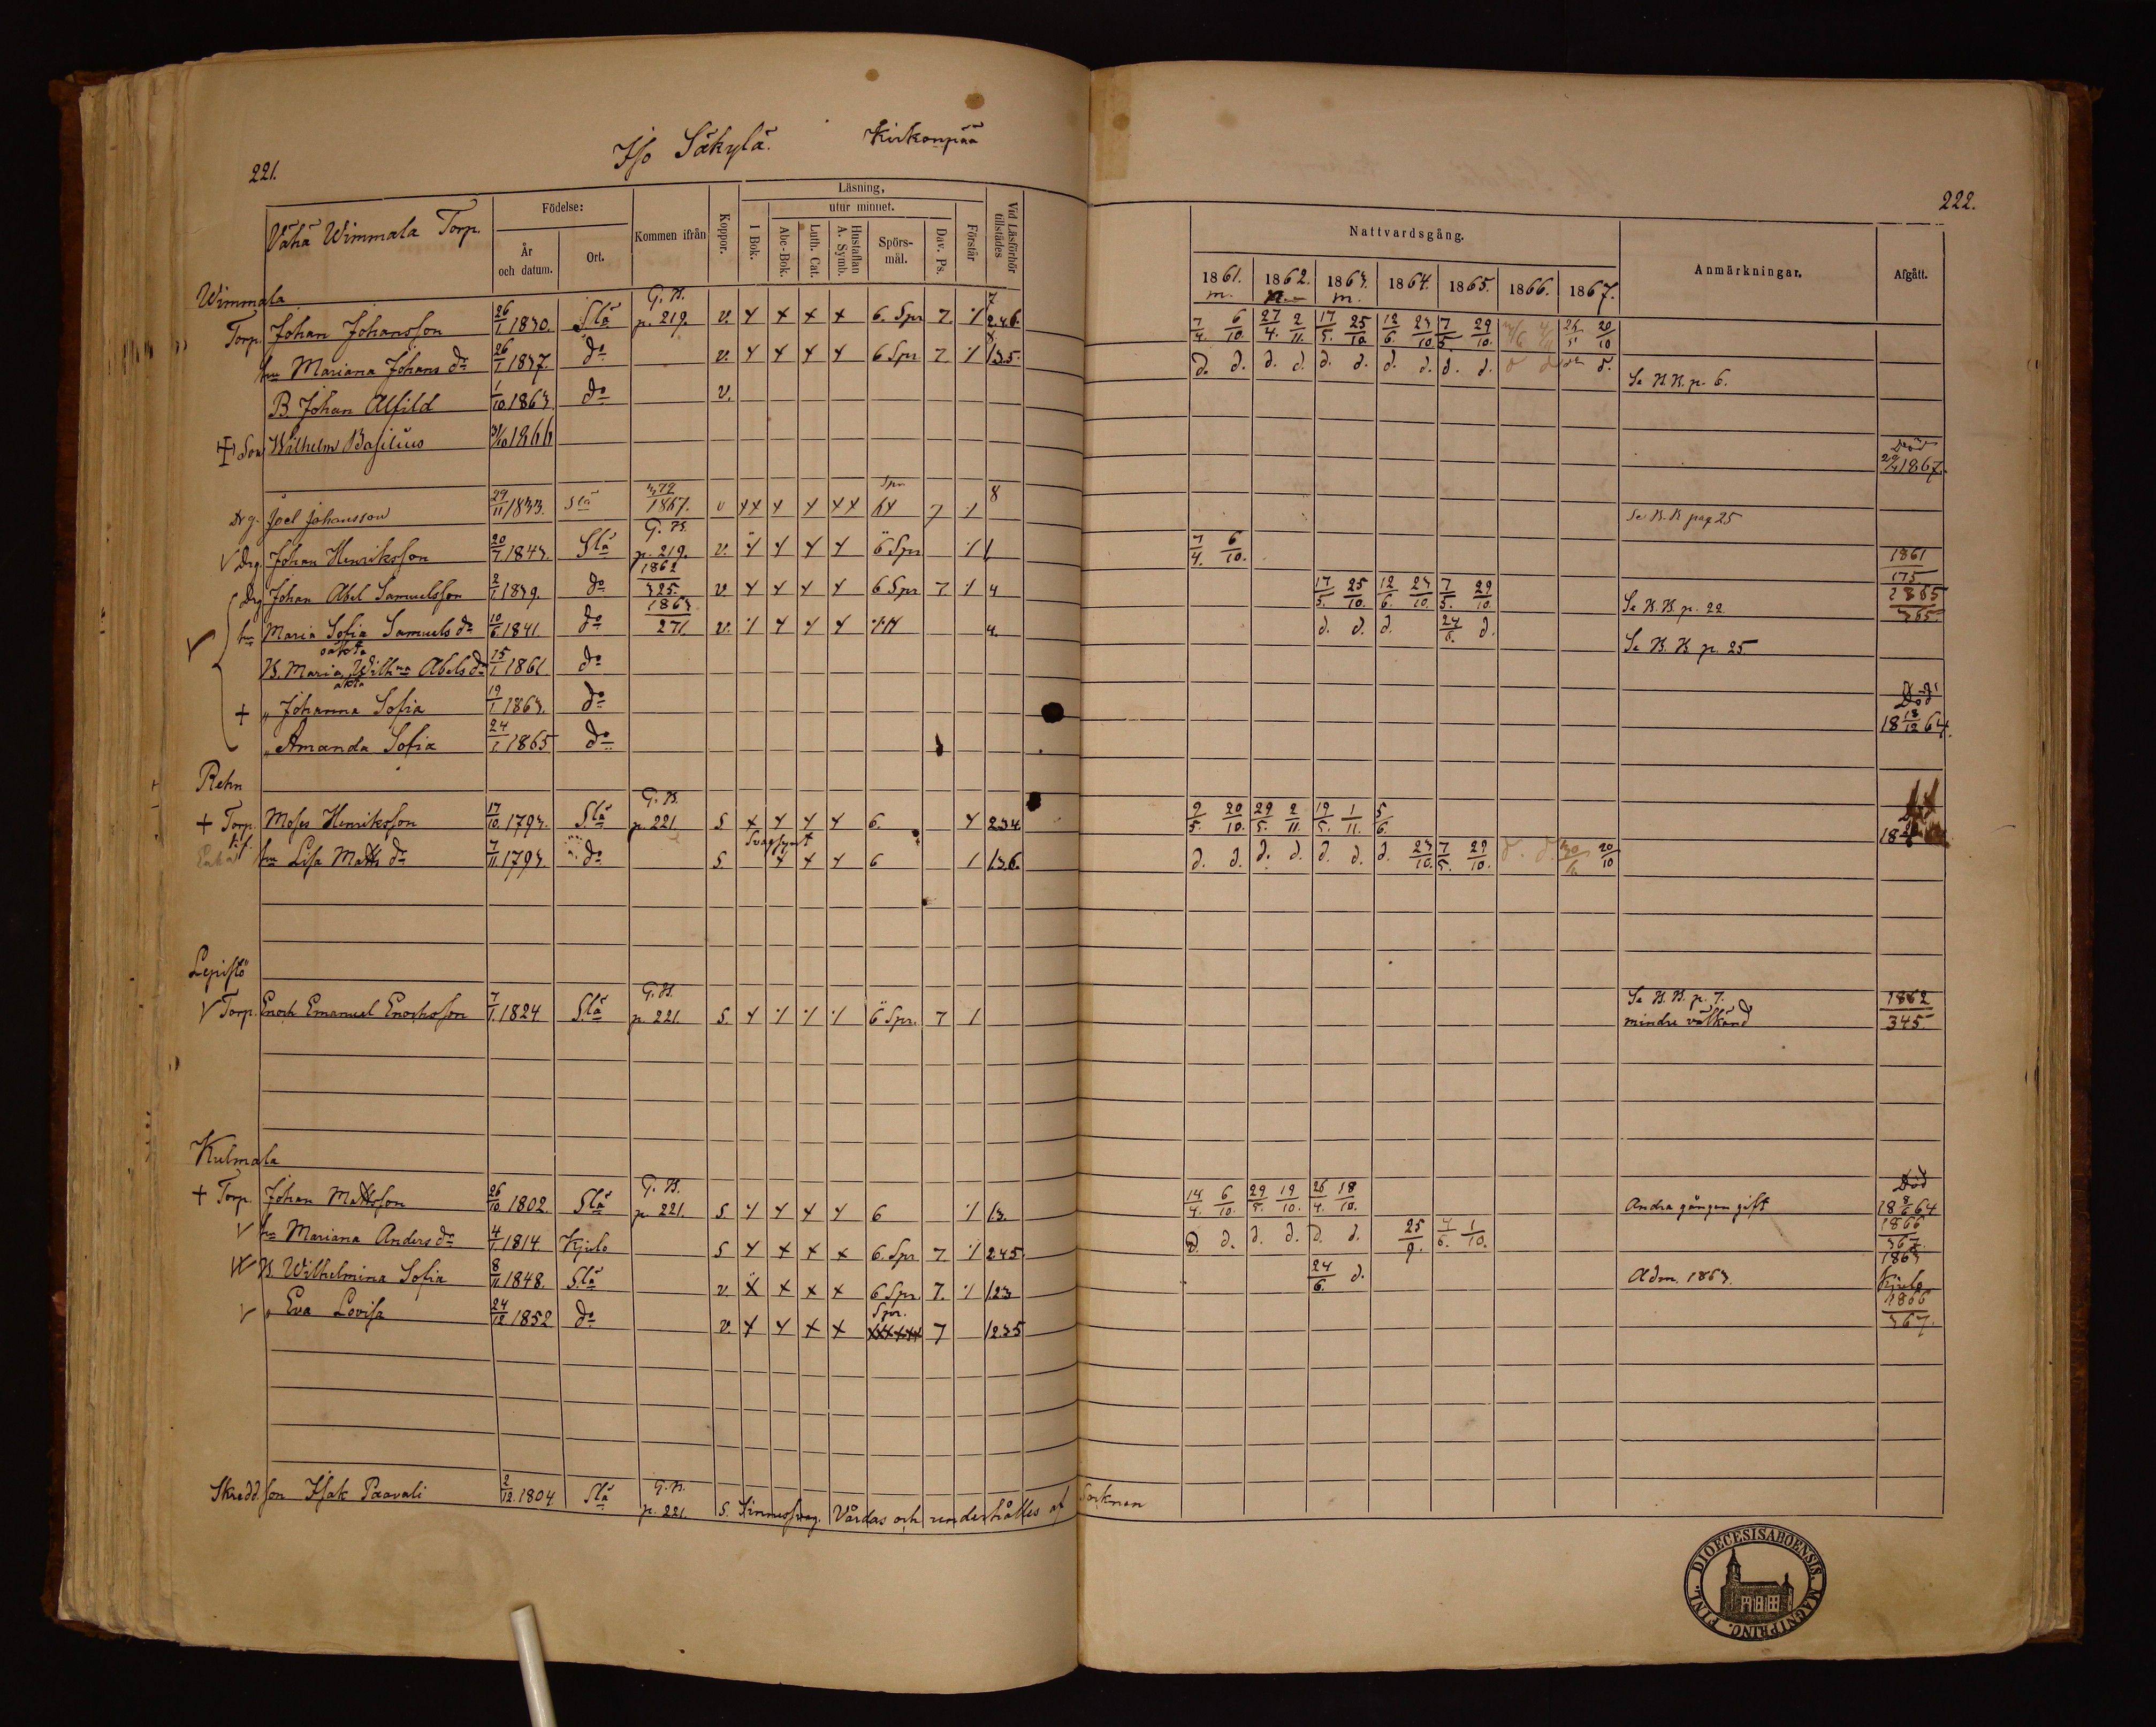 221.
Iso Säkylä. Kirkonpää
222.
Vähä Wimmala Torp.
Födelse:
År och datum.
Ort.
Kommen ifrån
Koppor.
Läsning,
I Bok.
utur minnet.
Abc-Bok.
Luth. Cat.
Hustaflan A. Symb.
Spörsmål.
Dav. Ps.
Förstår
Vid Läsförhör tillstädes
Nattvardsgång.
1861. 1862. 1863. 1864. 1865. 1866. 1867.
Anmärkningar.
Afgått.
Wimmala
Torp. Johan Johansson 26/1 1830. Slä G. B. p. 219. v. 6. Spr 7. 246. 7/4. 6/10. 27/4. 2/11. 17/5. 25/10. 12/6. 23/10. 7/5. 29/10. 20/10
hu Mariana Johans dr 26/1 1837. do v. 6 Spr 7 135. d. d. d. d. d. d. d. d. d. d.
B. Johan Alfild 1/10 1863 do v. Se B.B. p. 6.
Son Wilhelm Basilius 1866 Död 29/4 1867.
Drg. Joel Johansson 29/11 1833. Slä 1867. v 7 8 Se B.B pag 25
Drg. Johan Henriksson 20/1 1843. Slä G. B. p. 219. v. 6 Spr 7/4. 6/10. 1861 175
Drg Johan Abel Samuelsson 2/1 1839. do 1862 325. v 6 Spr 7 4 17/5. 25/10. 12/6. 23/10. 7/5. 29/10. Se B.B. p. 22 1865 365.
hu Maria Sofia Samuels dr 10/6 1841 do 1863 271. v. 4. d. d. d. 24/6. d. Se B.B p. 25
oäkta
B. Maria Wilhna Abels dr 15/1 1861 do
äkta
+ „ Johanna Sofia 19/1 1863. do Död 18 18/12 64.
„ Amanda Sofia 24/1 1865 do
Rehn
+ Torp. Moses Henriksson 17/10. 1793. Slä G. B. p. 221 S. 6. 234 9/5. 20/10. 29/5. 2/11. 19/5. 1/11. 5/6.
Svagsynt
hu Lisa Matts dr 7/11 1793. do S. 6 136. d. d. d. d. d. d. d. 23/10. 7/5. 29/10. 20/10
Lepistö
Torp. Enoch Emanuel Enochsson 7/1. 1824 Slä G. B. p. 221. S. 6 Spr. 7 Se B.B. p. 7. mindre välkänd 1862 345
Kulmala
+ Torp. Johan Mattsson 26/10 1802. Slä G. B. p. 221. S. 6 13. 14/4. 6/10. 29/5. 19/10. 26/4. 18/10. Andra gången gift Död 18 8/6 64
hu Mariana Anders dr 4/1. 1814. Kjulo S 6. Spr. 7. 245. d. d. d. d. d. d. 25/9. 4/6. 1/10. 1866 367.
B. Wilhelmina Sofia 8/11 1848. Slä v. 6 Spr. 7. 123 24/6. d. Adm. 1863. 1863 Kjulo
„ Eva Lovisa 24/12 1852 do v. Spr. 7 1235 1866 367.
Skredd.son Isak Paavali 2/12. 1804 Slä G. B. p. 221. S. Sinnessvag. Vårdas och underhålles af Socknen
FINL. DIOECESIS ABOENSIS. MAGNI PRINC.